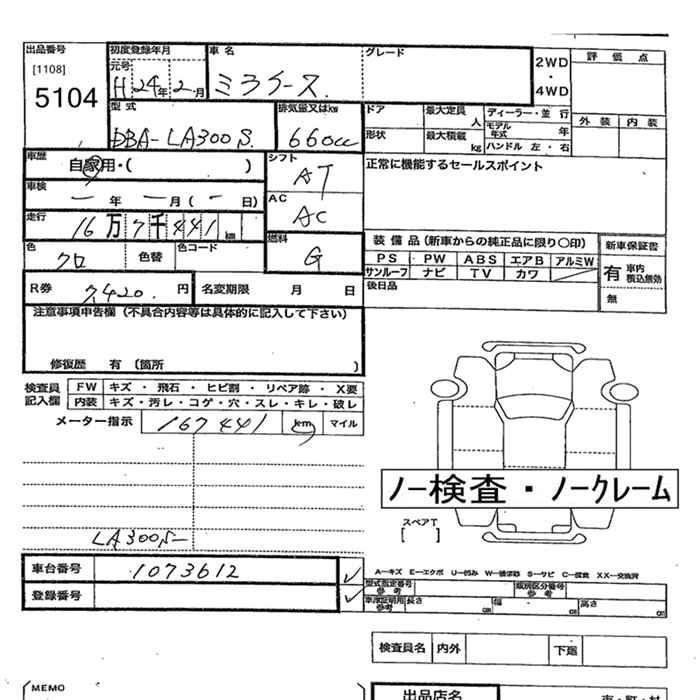 出品番号
[1108]
5104
初度登録年月
元号
H 24年 2月
車名
ミライース
グレード
2WD
・
4WD
評価点
外装 内装
型式
DBA-LA300S
排気量又はkw
660cc
ドア
形状
最大定員
人
最大積載
kg
ディーラー・並行
モデル年式 年
ハンドル 左・右
車歴
自家用・( )
シフト
AT
正常に機能するセールスポイント
車検
― 年 ― 月(― 日)
AC
AC
走行
16万7千441km
色
クロ
色替
色コード
燃料
G
装備品(新車からの純正品に限り○印)
PS PW ABS エアB アルミW
サンルーフ ナビ TV カワ
後日品
新車保証書
有 車内積込無効
無
R券
7,420. 円
名変期限 月 日
注意事項申告欄(不具合内容等は具体的に記入して下さい)
修復歴 有 (箇所 )
検査員記入欄
FW キズ・飛石・ヒビ割・リペア跡・X要
内装 キズ・汚レ・コゲ・穴・スレ・キレ・破レ
メーター指示
167441 km マイル
ノー検査・ノークレーム
スペアT
[ ]
LA300S-
車台番号
1073612
登録番号
A―キズ E―エクボ U―凹み W―補修跡 S―サビ C―腐食 XX―交換済
型式指定番号
参考
類別区分番号
参考
車庫証明用
参考
長さ cm 幅 cm 高さ cm
検査員名 内外 下廻
MEMO
出品店名
市・町・村